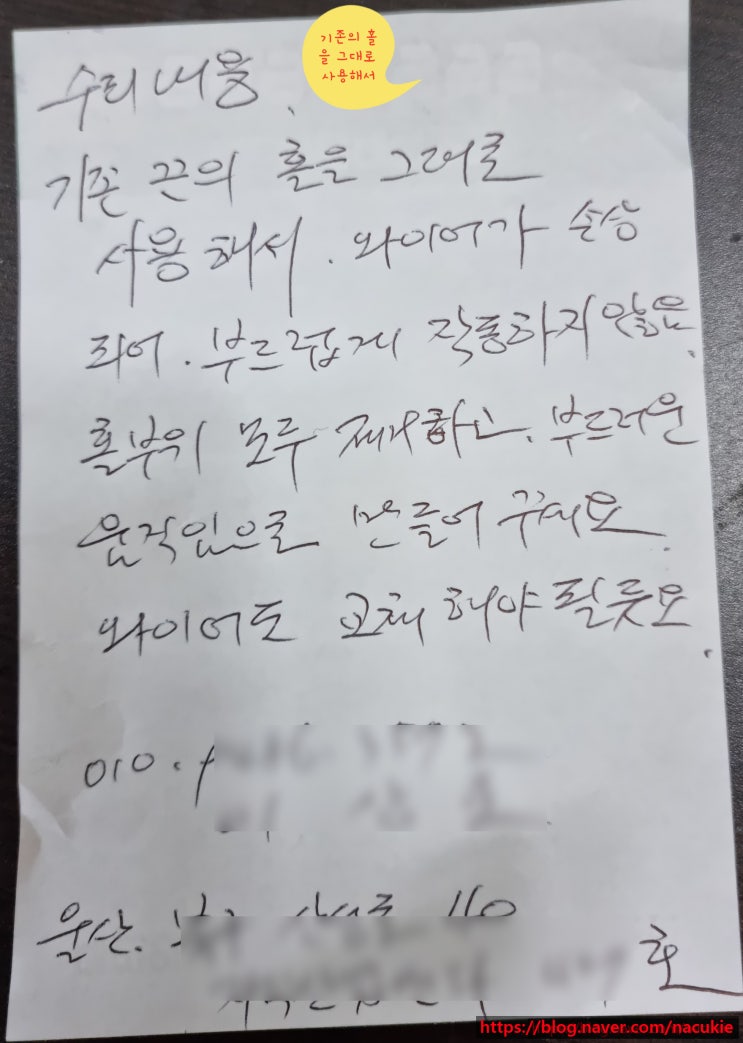 기존의 홀
을 그대로
사용해서
수리내용.
기존 끈의 홀을 그대로
사용해서. 와이어가 손상
되어. 부드럽게 작동하지 않음.
홀부위 모두 제거하고. 부드러운
움직임으로 만들어 주세요.
와이어도 교체해야 될듯요.
010.
울산. 110
호
https://blog.naver.com/nacukie